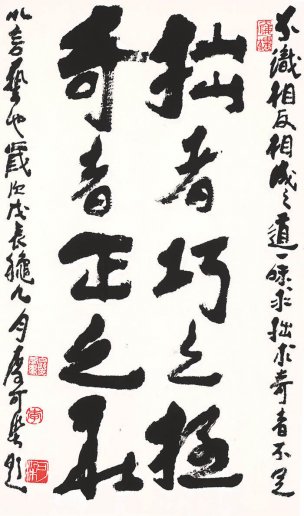 不識相反相成之道一味求拙求奇者不足
拙者巧之极
奇者正之
以言藝也歲次戊辰穐九月李可染題